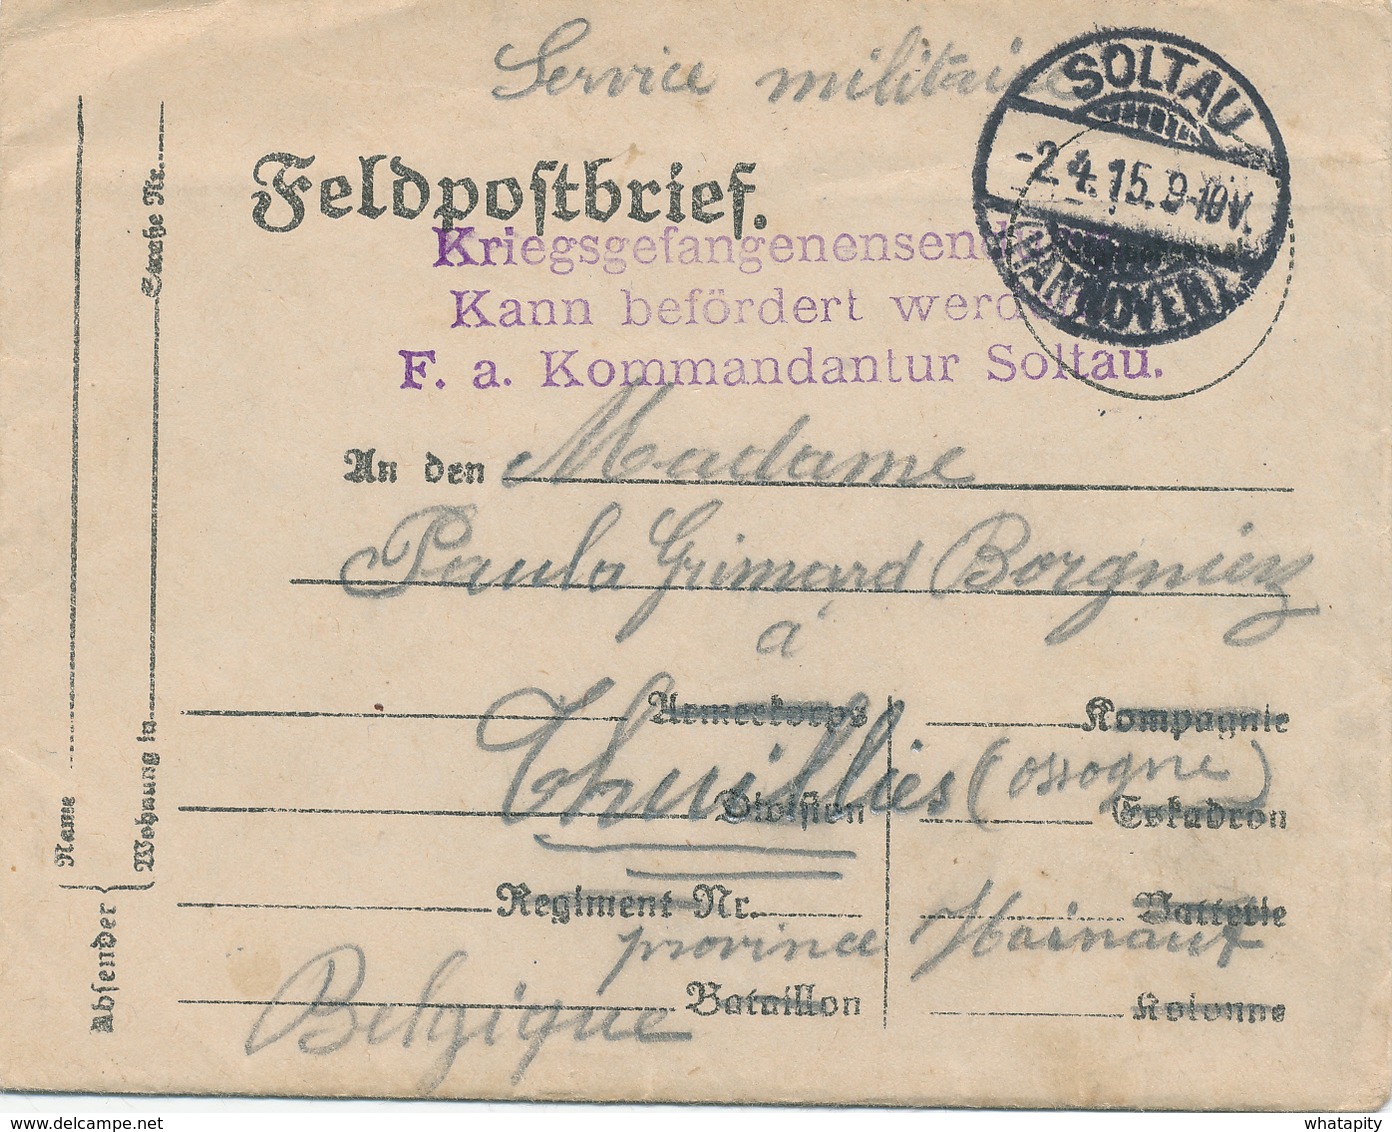 Service militaire
SOLTAU
-2.4.15.9-10V.
(HANNOVER)
Feldpostbrief.
Kriegsgefangenensendung
Kann befördert werden
F. a. Kommandantur Soltau.
An den Madame
Paula Grimard Borgniez
à
Armeekorps
Kompagnie
Thuillies (Ossogne)
Division
Eskadron
Regiment Nr.
Batterie
province Hainaut
Bataillon
Kolonne
Belgique
Absender
Name
Wohnung in
Straße Nr.
delcampe.net
whatapity